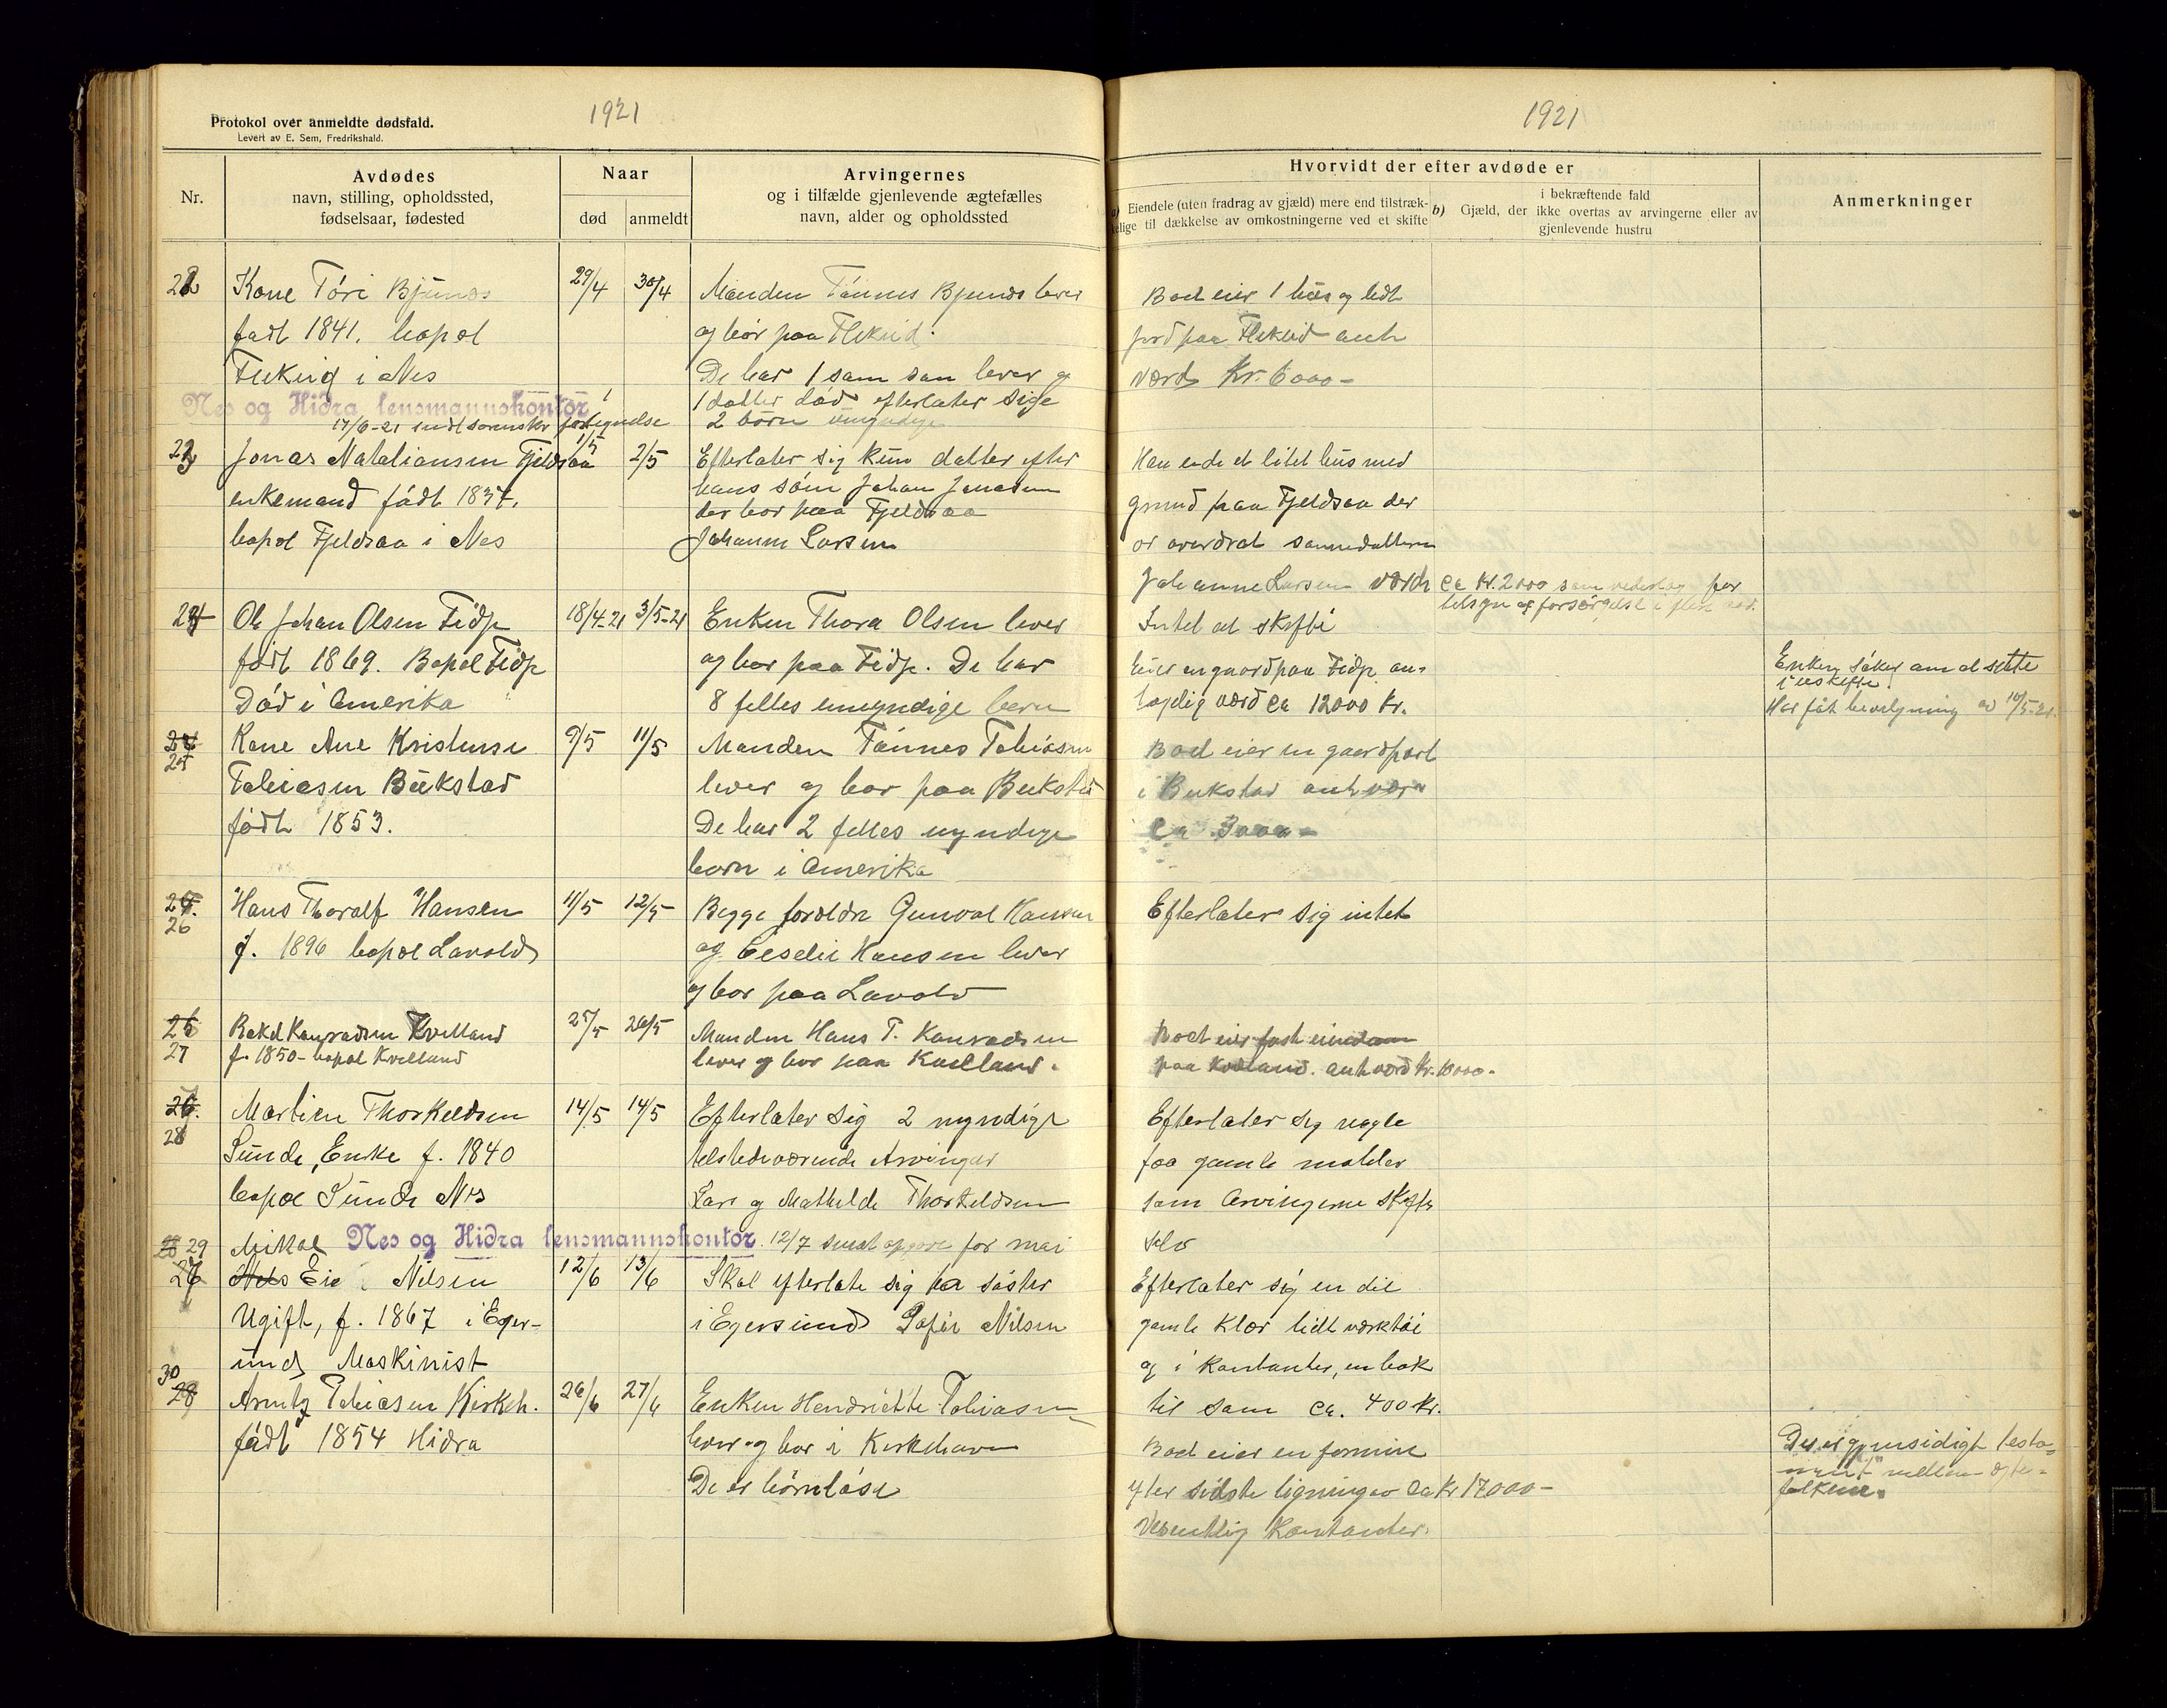 1921
Protokol over anmeldte dødsfald.
Levert av E. Sem, Fredrikshald.
Nr.
Avdødes
navn, stilling, opholdssted,
fødselsaar, fødested
Naar
død
anmeldt
Arvingernes
og i tilfælde gjenlevende ægtefælles
navn, alder og opholdssted
22
Kone Tóri
født 1841. bopæl
i Nes
29/4
30/4
Manden Tønnes lever
og bór paa
De har 1 søm som lever og
1 datter død efterlater sige
2 børn umyndige
Nes og Hidra lensmannskontor
17/6-21 indt sorenskr fortegnelse
23
Jonas Nataliansen Fjeldsaa
enkemand født 1837.
bopæl Fjeldsaa i Nes
1/5
2/5
Efterlater sig kun datter efter
hans sóm Johan Jonassen
der bor paa Fjeldsaa
Johanne Larsen
24
Ole Johan Olsen Fidje
født 1869. Bopæl Fidje
Død i Amerika
18/4-21
3/5-21
Enken Thora Olsen lever
og bor paa Fidje. De har
8 felles umyndige børn
25
Kone Ane
Tobiasen Bukstad
født 1853.
9/5
11/5
Manden Tønnes Tobiasen
lever og bor paa Bukstad
De har 2 felles myndige
børn i Amerika
26
Hans Thoralf Hansen
f. 1896 bopæl Lavold
11/5
12/5
Begge foreldre Gunvald Hansen
og Hansen lever
og bor paa Lavold
27
Konradsen Kvelland
f. 1850 - bopæl Kvelland
25/5
26/5
Manden Hans T. Konradsen
lever og bor paa Kvelland.
28
Thorkeldsen
Sunde, Enke f. 1840
bopæl Sunde Nes
14/5
14/5
Efterlater sig 2 myndige
tilstedeværende Arvinger
Lars og Mathilde Thorkeldsen
Nes og Hidra lensmannskontor. 12/7 sendt opgave for mai
29
Mikal
Nilsen
Ugift, f. 1867 i Eger-
und Maskinist
12/6
13/6
Skal efterlate sig søster
i Egersund Sofie Nilsen
30
Arntz Tobiasen Kirkeh.
født 1854 Hidra
26/6
27/6
Enken Hendriette Tobiasen
lever og bor i Kirkehavn
De er børnløse
1921
Hvorvidt der efter avdøde er
a) Eiendele (uten fradrag av gjæld) mere end tilstræk-
kelige til dækkelse av omkostningerne ved et skifte
b) Gjæld, der i bekræftende fald
ikke overtas av arvingerne eller av
gjenlevende hustru
Anmerkninger
Boet eier 1 hus og lidt
jord paa anth
værd Kr. 6000-
Han eide et litet hus med
grund paa Fjeldsaa der
er overdrat sønnedatteren
Johanne Larsen værdi ca Kr. 2000 som vederlag for
tilsyn og forsørgelse i flere aar.
Intet at skifte
Eier en gaard paa Fidje an-
tagelig værd ca 12000 kr.
Enken søker om at sitte
i uskifte.
Har fåt bevilgning av 10/5-21.
Boet eier en gaardpart
i Bukstad anth værd
ca 3000-
Efterlater sig intet
Boet eier fast eiendom
paa Kvelland. anth værd Kr. 10000-
Efterlater sig nogle
faa gamle møbler
som Arvingerne skifte
selv
Efterlater sig en del
gamle Klær lidt værktøi
og i kontanter, en bok
til sam ca. 400 kr.
Boet eier en formue
efter sidste ligning av ca Kr 17000-
Vesentlig Kontanter.
Der er gjensidigt testa-
ment mellem egte-
folkene.